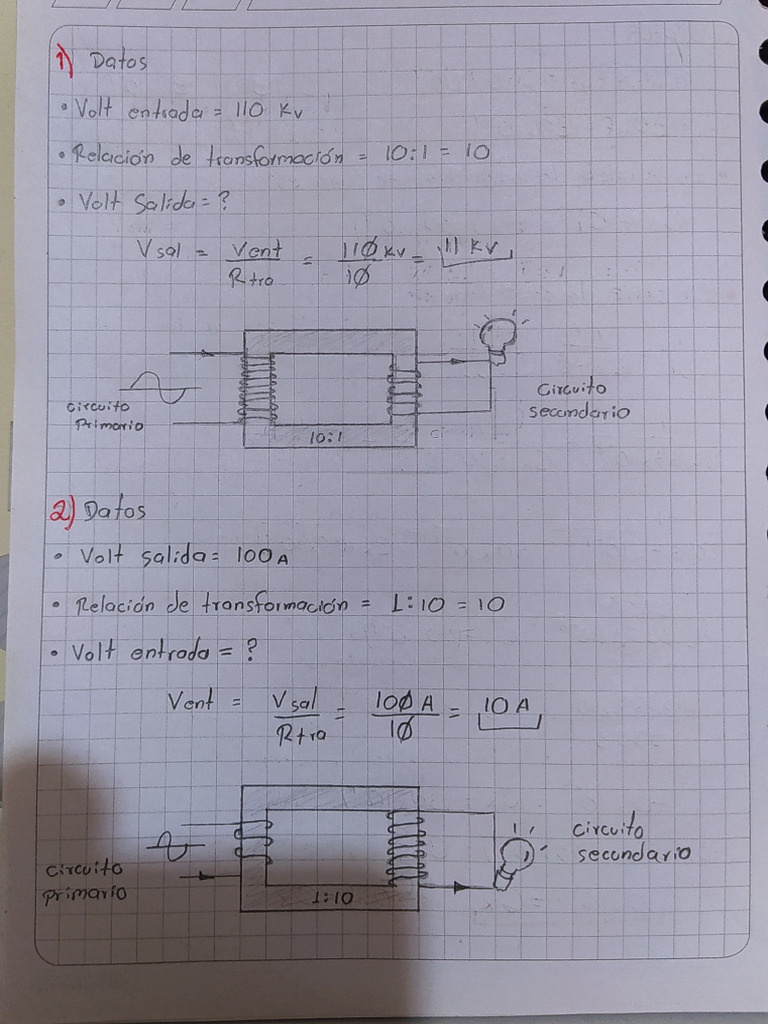 1) Datos
• Volt entrada = 110 Kv
• Relación de transformación = 10:1 = 10
• Volt Salida = ?
Vsal = Vent / Rtra = 110 Kv / 10 = 11 Kv
circuito
Primario
10:1
Circuito
secundario
2) Datos
• Volt salida = 100 A
• Relación de transformación = 1:10 = 10
• Volt entrada = ?
Vent = Vsal / Rtra = 100 A / 10 = 10 A
circuito
primario
1:10
circuito
secundario